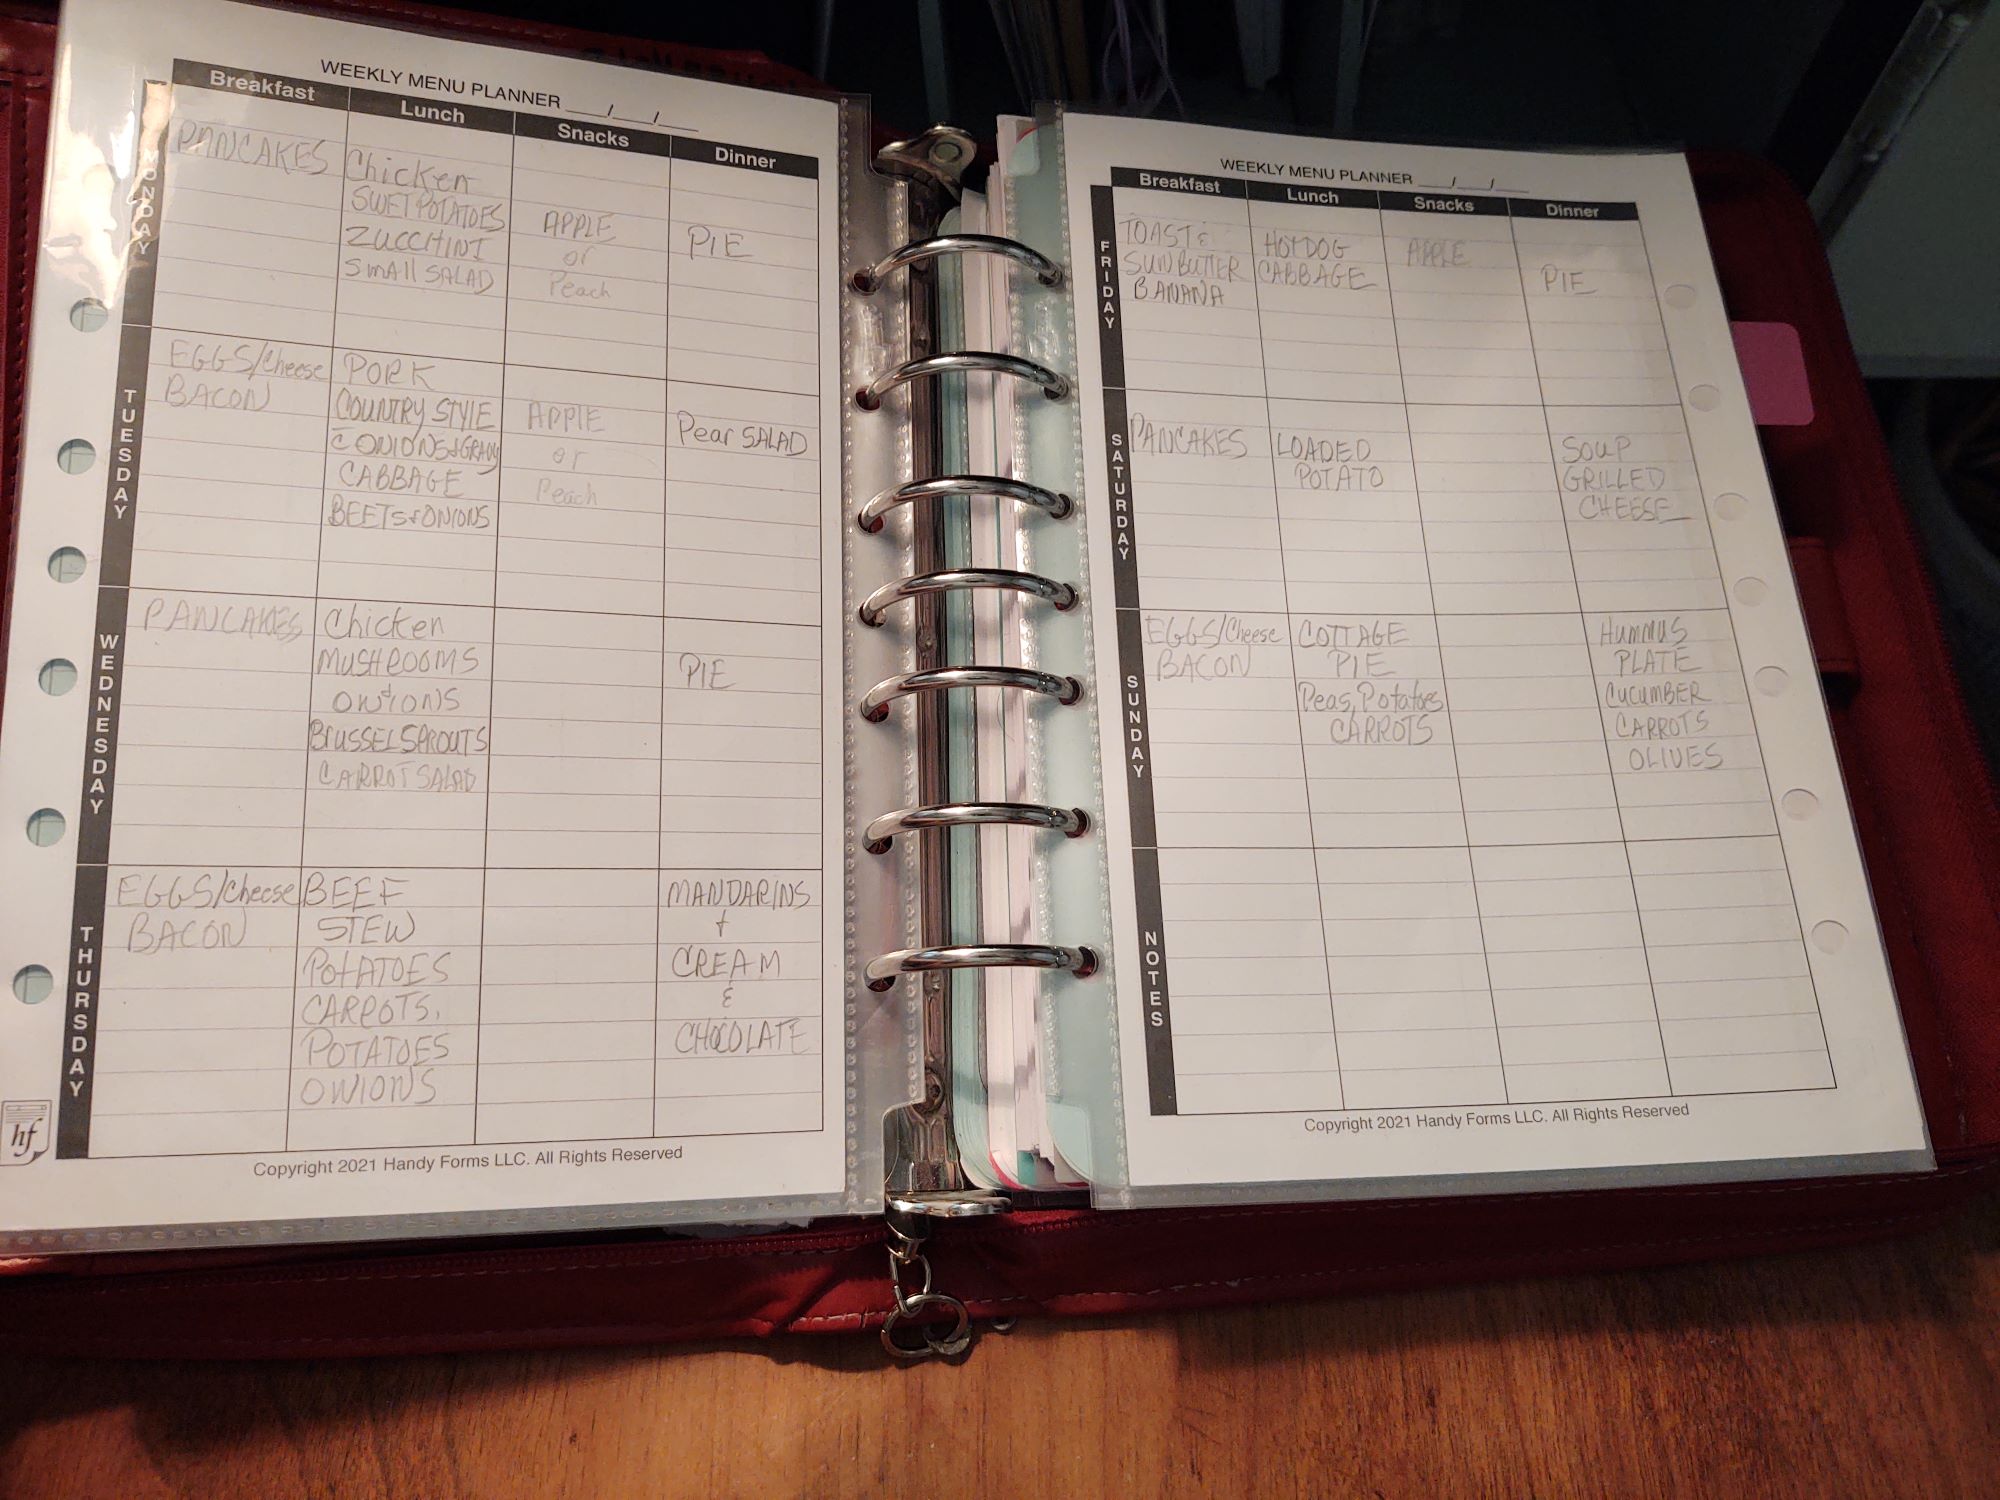 WEEKLY MENU PLANNER ___/___/___
Breakfast Lunch Snacks Dinner
MONDAY
PANCAKES
Chicken
SWET POTATOES
ZUCCHINI
Small SALAD
APPLE
or
Peach
PIE
TUESDAY
EGGS/Cheese
BACON
PORK
COUNTRY STYLE
C ONIONS & GRAVY
CABBAGE
BEETS & ONIONS
APPLE
or
Peach
Pear SALAD
WEDNESDAY
PANCAKES
Chicken
MUSHROOMS
&
ONIONS
BrUSSEL SPROUTS
CARROT SALAD
PIE
THURSDAY
EGGS/Cheese
BACON
BEEF
STEW
POTATOES
CARROTS,
POTATOES
ONIONS
MANDARINS
+
CREAM
&
CHOCOLATE
hf
Copyright 2021 Handy Forms LLC. All Rights Reserved
WEEKLY MENU PLANNER ___/___/___
Breakfast Lunch Snacks Dinner
FRIDAY
TOAST &
SUN BUTTER
BANANA
HOTDOG
CABBAGE
APPLE
PIE
SATURDAY
PANCAKES
LOADED
POTATO
SOUP
GRILLED
CHEESE
SUNDAY
EGGS/Cheese
BACON
COTTAGE
PIE
Peas, Potatoes
CARROTS
HUMMUS
PLATE
CUCUMBER
CARROTS
OLIVES
NOTES
Copyright 2021 Handy Forms LLC. All Rights Reserved